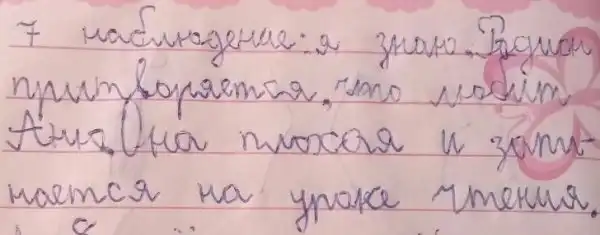 7 наблюдение: я знаю. Родион
притворяется, что любит
Аню. Она плохая и запи-
нается на уроке чтения.